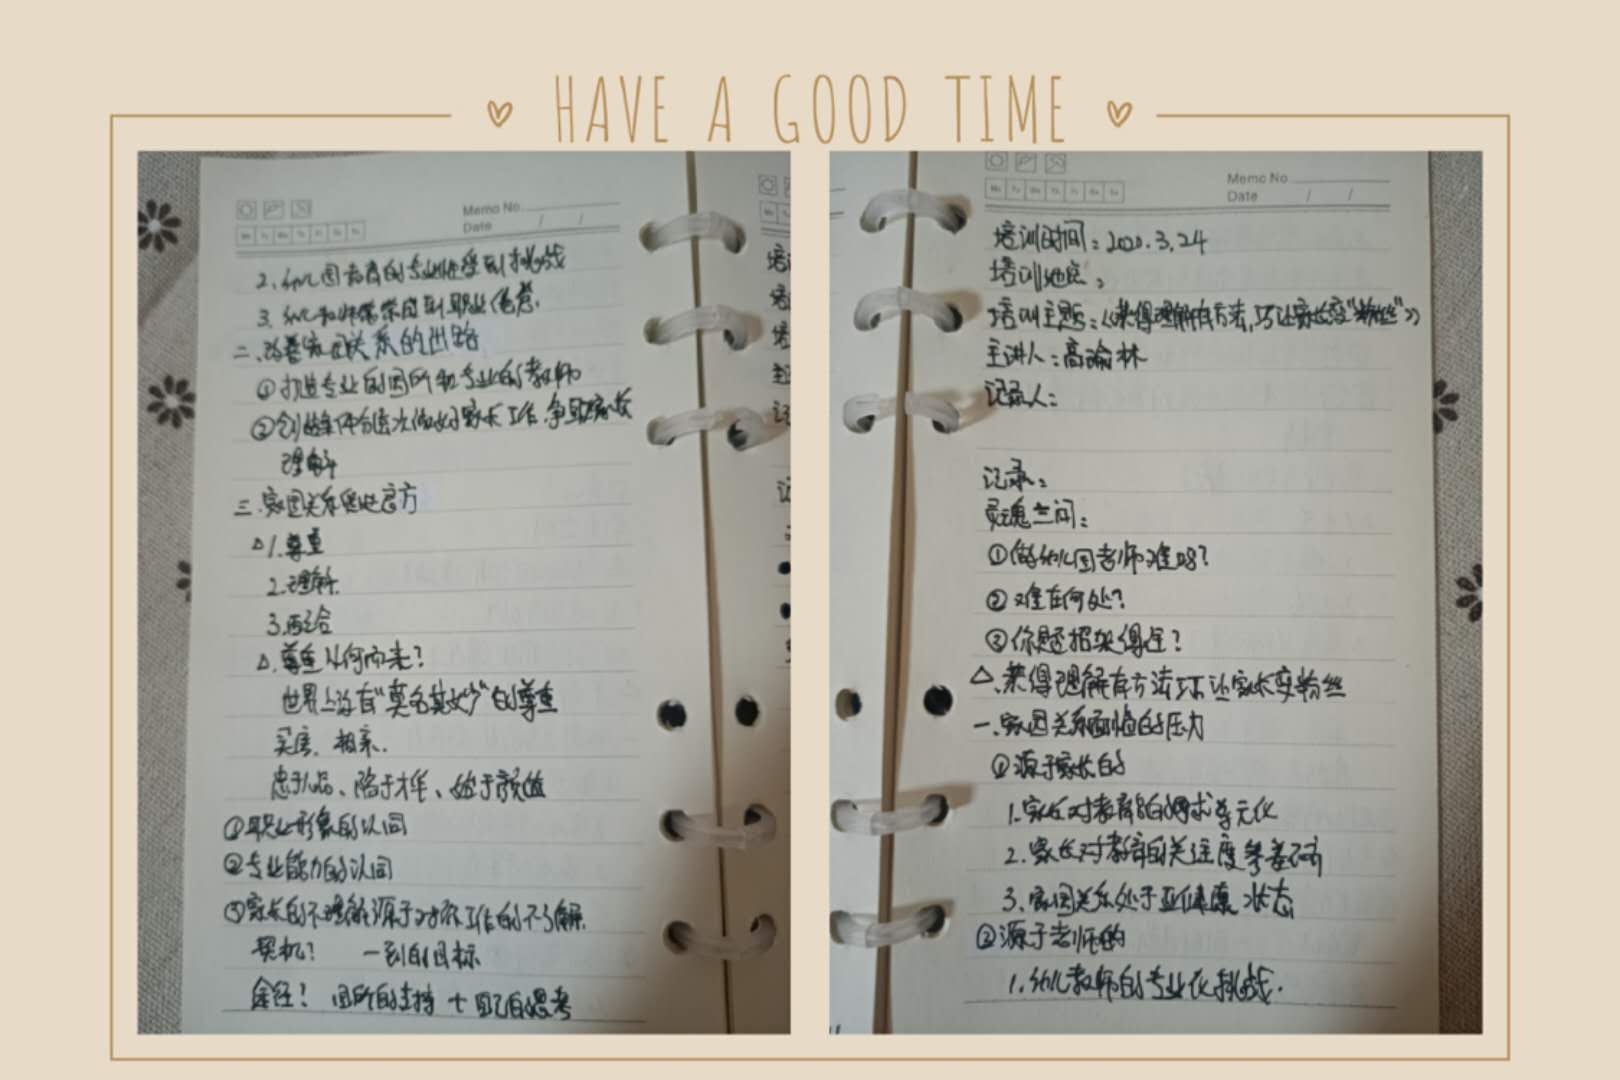 HAVE A GOOD TIME
Memo No.
Date / /
2、幼儿园教育的专业性受到挑战
3、幼儿教师常常感到职业倦怠.
二、改善家园关系的出路
①打造专业的园所和专业的教师
②创造条件分层次做好家长工作,争取家长
理解
三、家园关系
△1.尊重
2.理解.
3.配合
△、尊重从何而来?
世界上没有“莫名其妙”的尊重
买房、相亲、
忠于人品、陷于才华、始于颜值
①职业形象的认同
②专业能力的认同
③家长的不理解源于对你工作的不了解.
契机? 一致的目标
途径! 园所的支持 + 自己的思考
Memo No.
Date / /
培训时间:2020.3.24
培训地点:
培训主题:《获得理解有方法,巧让家长变“粉丝”》
主讲人:高瑜林
记录人:
记录:
灵魂三问:
①做幼儿园老师难吗?
②难在何处?
③你还招架得住?
△、获得理解有方法 巧让家长变粉丝
一、家园关系面临的压力
①源于家长的
1.家长对教育的需求多元化
2.家长对教育的关注度参差不齐
3.家园关系处于亚健康状态
②源于老师的
1.幼儿教师的专业化挑战.